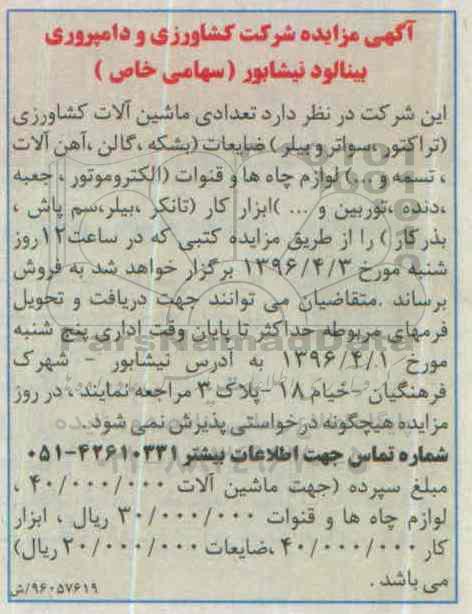 آگهی مزایده شرکت کشاورزی و دامپروری
بینالود نیشابور (سهامی خاص )
این شرکت در نظر دارد تعدادی ماشین آلات کشاورزی
(تراکتور ،سواتر و بیلر ) ضایعات (بشکه ،گالن ،آهن آلات
، تسمه و ... ) لوازم چاه ها و قنوات (الکتروموتور ، جعبه
،دنده ،توربین و ... )ابزار کار (تانکر ،بیلر،سم پاش ،
بذر کار ) را از طریق مزایده کتبی که در ساعت۱۲روز
شنبه مورخ ۱۳۹۶/۴/۳ برگزار خواهد شد به فروش
برساند .متقاضیان می توانند جهت دریافت و تحویل
فرمهای مربوطه حداکثر تا پایان وقت اداری پنج شنبه
مورخ ۱۳۹۶/۴/۱ به آدرس نیشابور - شهرک
فرهنگیان -خیام ۱۸ -پلاک ۳ مراجعه نمایند ،در روز
مزایده هیچگونه درخواستی پذیرش نمی شود.
شماره تماس جهت اطلاعات بیشتر ۴۲۶۱۰۳۳۱-۰۵۱
مبلغ سپرده (جهت ماشین آلات ۴۰/۰۰۰/۰۰۰ ،
لوازم چاه ها و قنوات ۳۰/۰۰۰/۰۰۰ ریال ، ابزار
کار ۴۰/۰۰۰/۰۰۰ ،ضایعات ۲۰/۰۰۰/۰۰۰ ریال)
می باشد .
۹۶۰۵۷۶۱۹/ش
ParsNamadData